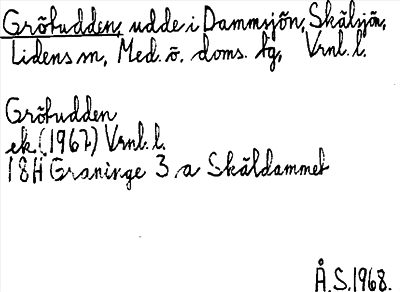 Grötudden, udde i Dammsjön, Skälsjön,
Lidens sn, Med. ö. doms. tg, Vrnl. l.
Grötudden
ek. (1967) Vrnl. l.
18H Graninge 3 a Skäldammet
Å.S. 1968.